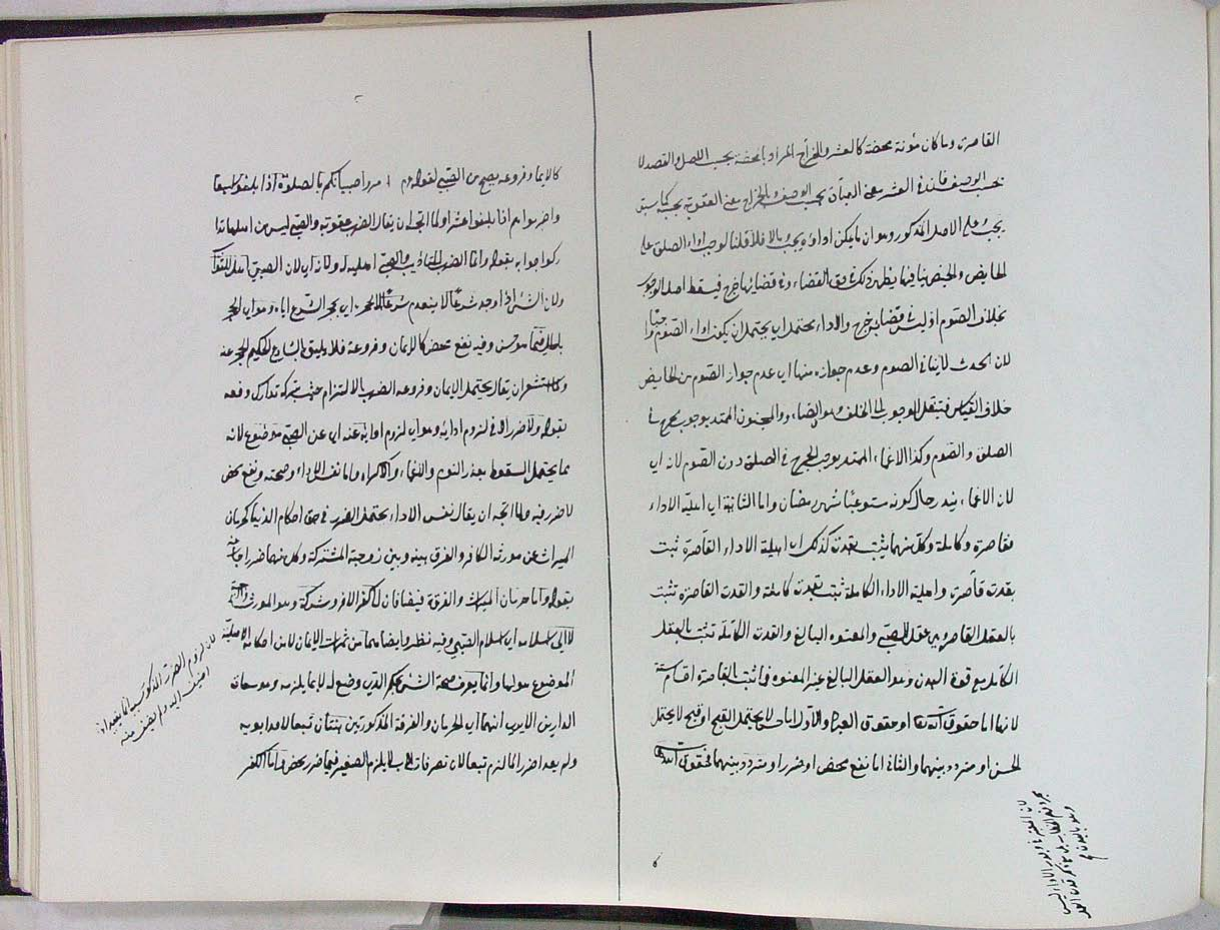 القاصرة وما كان مؤنة محضة كالعشر والخراج المراد بالمحضة بحسب الاصل والقصد لا
بحسب الوصف فان في العشر معنى العبادة بحسب الوصف وفي الخراج معنى العقوبة يجب كما سبق
يجب على الاصل المذكور وهو ان ما يمكن اداؤه يجب وما لا فلا قلنا لوجب اداء الصلوة على
الحايض والحيض ينافيها يظهر ذلك في حق القضاء وفي قضائها حرج فيسقط اصل الوجوب
بخلاف الصوم اذ ليس في قضائه حرج والاداء محتمل اي يحتمل ان يكون اداء الصوم واجبا
لان الحدث لا ينافي الصوم وعدم جوازه منها اي عدم جواز الصوم من الحايض
خلاف القياس فينتقل الوجوب الى الخلف وهو القضاء والمجنون الممتد يوجب الحرج في
الصلوة والصوم وكذا الاغماء الممتد يوجب الحرج في الصلوة دون الصوم لانه اي
لان الاغماء يندر حال كونه مستوعبا شهر رمضان واما الثانية اي اهلية الاداء
فقاصرة وكاملة وكل منهما يثبت بقدرة كذلك اي اهلية الاداء القاصرة تثبت
بقدرة قاصرة واهلية الاداء الكاملة تثبت بقدرة كاملة والقدرة القاصرة تثبت
بالعقل القاصر وهي عقل الصبي والمعتوه البالغ والقدرة الكاملة تثبت بالعقل
الكامل مع قوة البدن وهو العقل البالغ غير المعتوه فما ثبت القاصرة اقسام ستة
لانها اما حقوق الله تعالى او حقوق العباد والاول اما حسن لا يحتمل القبح او قبيح لا يحتمل
الحسن او متردد بينهما والثاني اما نفع محض او ضرر او متردد بينهما فحقوق الله تعالى
لان المعتبر في وجوب الاداء ليس
مجرد فهم الخطاب بل مع قدرة العمل
وهو بالبدن
كالايمان وفروعه يصح من الصبي لقوله مروا صبيانكم بالصلوة اذا بلغوا سبعا
واضربوهم اذا بلغوا عشرا ولما اتجه ان يقال الضرب عقوبة والصبي ليس من اهلها تدا
ركوا جوابه بقوله وانما الضرب للتأديب والصبي اهل له ولانه اي لان الصبي اهل للثواب
ولان الشئ اذا وجد شرعا لا ينعدم شرعا الا لحجر اي بحجر الشرع اياه وهو اي الحجر
باطل فيما هو حسن وفيه نفع محض كالايمان وفروعه فلا يليق بالشارع الحكيم الحجر عنه
وكما استشعر ان يقال يحتمل الايمان وفروعه الضرر بالالتزام حيث بتركه تدارك دفعه
بقوله ولا ضرر الا في لزوم ادائه وهو اي لزوم ادائه عنه اي عن الصبي موضوع لانه
مما يحتمل السقوط بعذر النوم والاغماء والاكراه واما نفس الاداء وصحته ونفع محض
لا ضرر فيه ولما اتجه ان يقال نفس الاداء يحتمل الضرر في حق احكام الدنيا كحرمان
الميراث عن مورثه الكافر والفرق بينه وبين زوجته المشتركة وكل منهما ضرر اجاب
بقوله واما حرمان الميراث والفرقة فيضافان الى كفر الاخر وشركه وهو المورث
لا الى اسلامه اي اسلام الصبي وفيه نظر وايضا هما من ثمرات الايمان لا من احكامه الاصلية
الموضوع هو لها وانما يعرف صحة الشئ بحكم الذي وضع له لا بما يلزمه وهو سعادة
الدارين الا يرى انهما اي الحرمان والفرقة المذكورتين يثبتان تبعا لاحد ابويه
ولم يعد ضررا لما لزم تبعا لان تصرفات الاب لا يلزم الصغير فيما ضرر محض واما الكفر